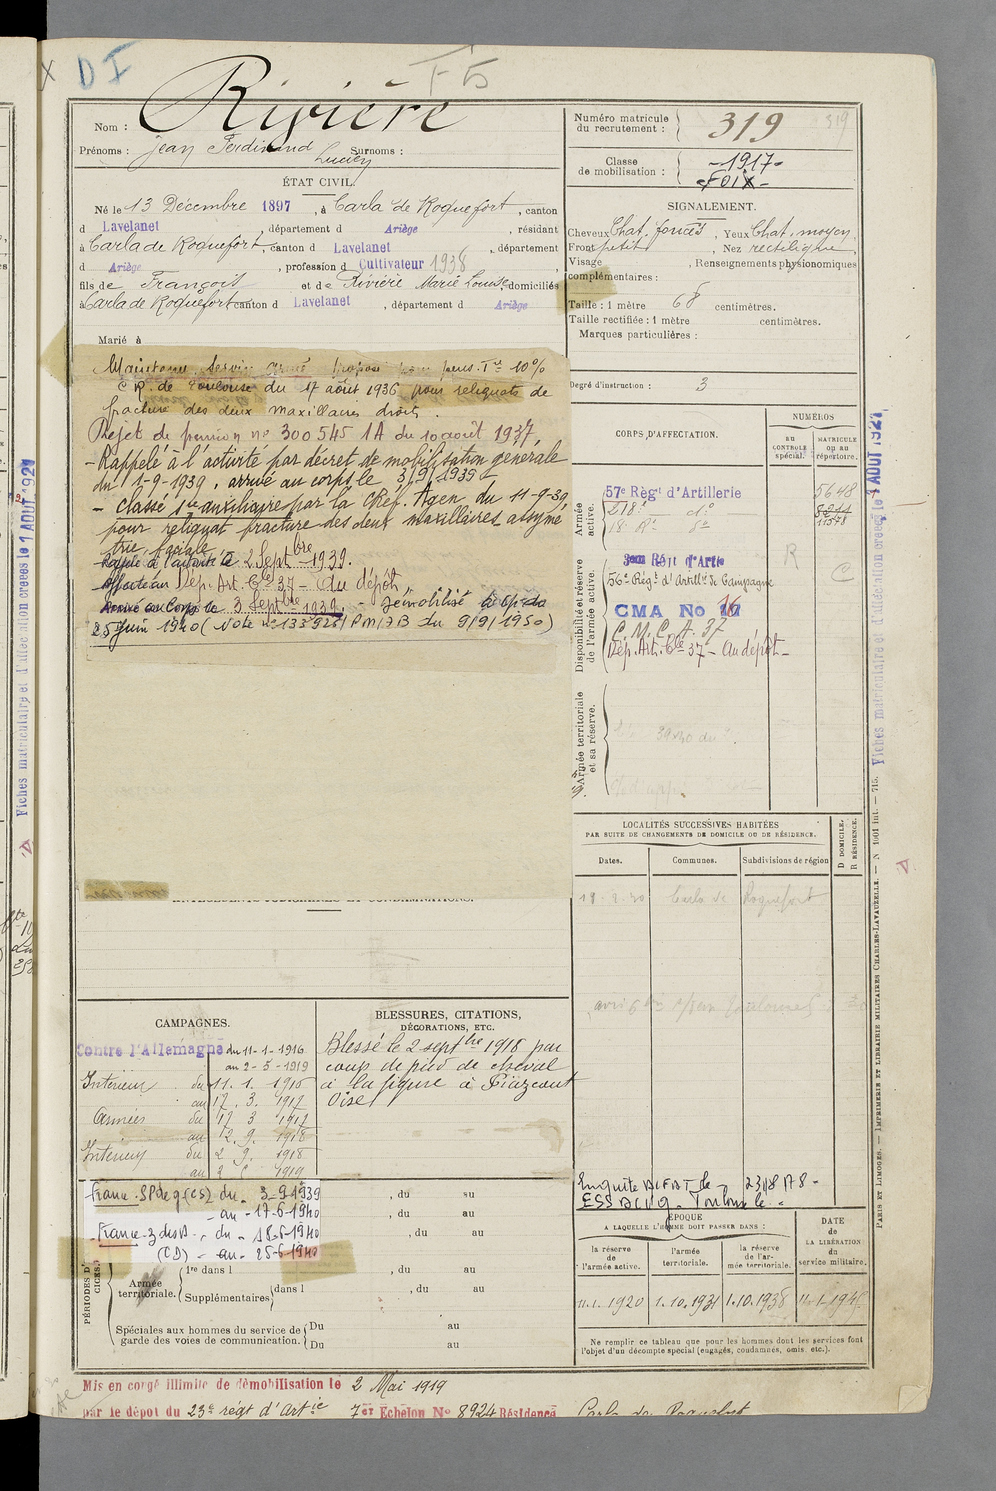 DI
F5
Nom : Rivière
Prénoms : Jean Ferdinand Lucien Surnoms :
ÉTAT CIVIL.
Né le 13 Décembre 1897, à Carla de Roquefort, canton
d Lavelanet, département d Ariège, résidant
à Carla de Roquefort, canton d Lavelanet, département
d Ariège, profession d Cultivateur 1938
fils de François et de Rivière Marie Louise domiciliés
à Carla de Roquefort canton d Lavelanet, département d Ariège
Marié à
Maintenu Service armé proposé pour pens. Tre 10%
C.R. de Toulouse du 17 août 1936 pour reliquats de
fracture des deux maxillaires droits.
Rejet de pension no 300545 1A du 10 août 1937
- Rappelé à l'activité par décret de mobilisation générale
du 1-9-1939, arrivé au corps le 3/9/1939
- classé sce auxiliaire par la C.Réf. Agen du 11-9-39
pour reliquat fracture des deux maxillaires asymé
trie faciale
Rappelé à l'activité le 2 Septbre 1939.
Affecté au Dép. Art. Cie 37 - Au dépôt,
Arrivé au Corps le 3 Septbre 1939. - Démobilisé
25 Juin 1940 (Note no 133925/PM/7B du 9/9/1950)
Numéro matricule du recrutement : 319
319
Classe de mobilisation : -1917-
-FOIX-
SIGNALEMENT.
Cheveux Chat. foncés, Yeux Chat. moyen
Front petit, Nez rectiligne
Visage , Renseignements physionomiques
complémentaires :
Taille : 1 mètre 68 centimètres.
Taille rectifiée : 1 mètre centimètres.
Marques particulières :
Degré d'instruction : 3
CORPS D'AFFECTATION.
NUMÉROS
au CONTROLE spécial.
MATRICULE ou au répertoire.
Armée active.
57e Régt d'Artillerie
5648
218e do
8924
18e Rt do
11578
Disponibilité et réserve de l'armée active.
56e Régt d'Artillie de Campagne
R
C
CMA No 17
16
C.M.C.A. 37
Dép. Art. Cie 37 - Au dépôt -
Armée territoriale et sa réserve.
LOCALITÉS SUCCESSIVES HABITÉES
PAR SUITE DE CHANGEMENTS DE DOMICILE OU DE RÉSIDENCE.
Dates.
Communes.
Subdivisions de région
D DOMICILE,
R RÉSIDENCE.
Carla de Roquefort
CAMPAGNES.
Contre l'Allemagne du 11-1-1916
au 2-5-1919
Intérieur du 11. 1. 1916
au 17. 3. 1917
Armées du 17 3 1917
au 12. 9. 1918
Intérieur du 2 9. 1918
BLESSURES, CITATIONS,
DÉCORATIONS, ETC.
Blessé le 2 septbre 1918 par
coup de pied de cheval
à la figure à
Oise
France SP de g(CS) du 3-9-1939
- au - 17-6-1940
France - du - 18-6-1940
(CD) - au - 25-6-1940
, du au
, du au
, du au
, du au
PÉRIODES D'
CICES.
Armée territoriale.
1re dans l
Supplémentaires dans l
Spéciales aux hommes du service de
garde des voies de communication.
Du au
Du au
Toulouse
ÉPOQUE
A LAQUELLE L'HOMME DOIT PASSER DANS :
la réserve de l'armée active.
l'armée territoriale.
la réserve de l'armée territoriale.
DATE
de
LA LIBÉRATION
du
service militaire.
11.1.1920
1.10.1931
1.10.1938
Ne remplir ce tableau que pour les hommes dont les services font
l'objet d'un décompte spécial (engagés, condamnés, omis etc.).
Mis en congé illimité de démobilisation le 2 Mai 1919
par le dépôt du 23e régt d'Artie 7er Echelon No 8924 Résidence Carla de Roquefort
Fiches matriculaire et d'affectation créées le 1 AOUT 1927
Fiches matriculaire et d'affectation créées le 1 AOUT 1927
PARIS ET LIMOGES. — IMPRIMERIE ET LIBRAIRIE MILITAIRES CHARLES-LAVAUZELLE. — N 1001 int. — 715.